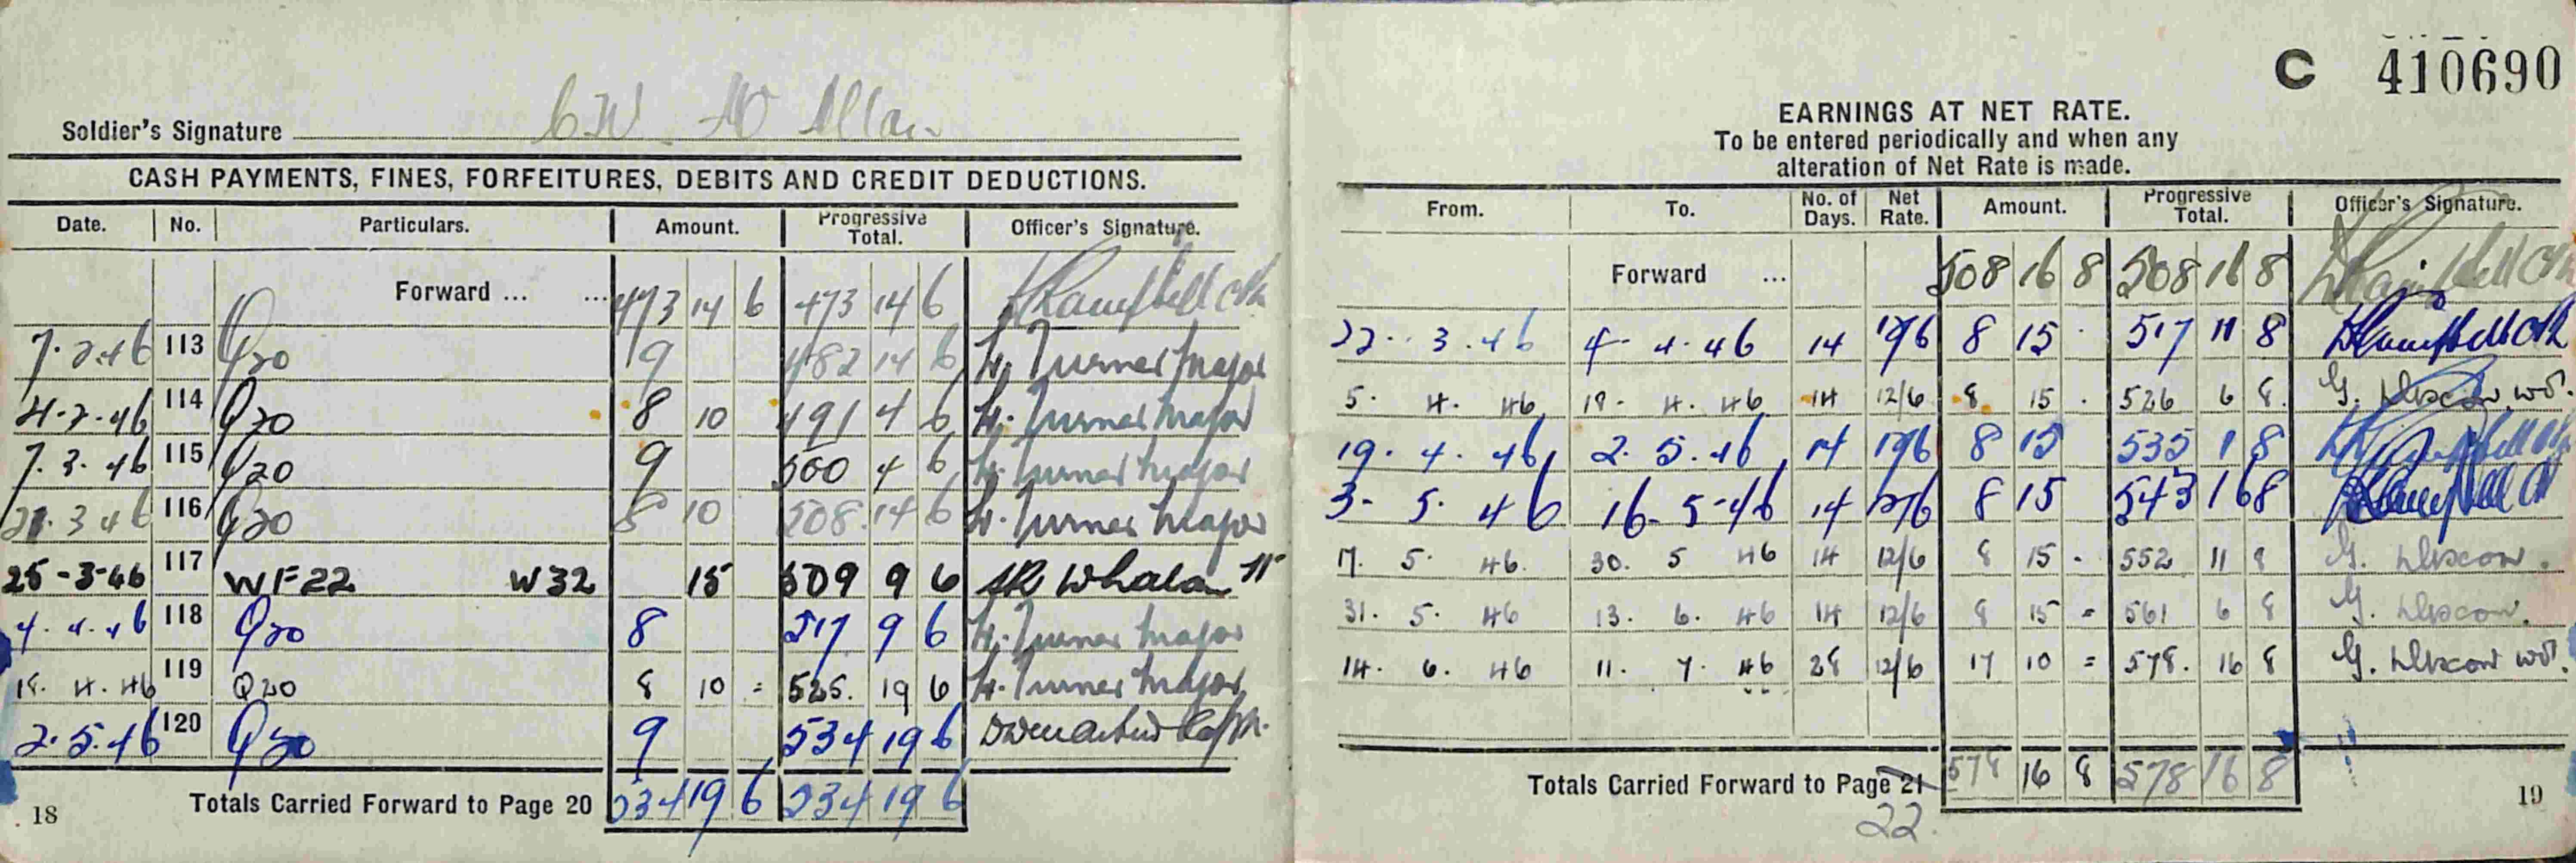 Soldier's Signature
CASH PAYMENTS, FINES, FORFEITURES, DEBITS AND CREDIT DEDUCTIONS.
Date. No. Particulars. Amount. Progressive Total. Officer's Signature.
Forward ... ... 473 14 6 473 14 6
7.2.46 113 Q20 9 482 14 6 H. Turner Major
114 Q20 8 10 491 4 6 H. Turner Major
7.3.46 115 Q20 9 500 4 6 H. Turner Major
21.3.46 116 Q20 8 10 508 14 6 H. Turner Major
25-3-46 117 WF22 W32 15 509 9 6 Whalan
4.4.46 118 Q20 8 517 9 6 H. Turner Major
18.4.46 119 Q20 8 10 = 525. 19 6 H. Turner Major
2.5.46 120 Q20 9 534 19 6
Totals Carried Forward to Page 20 534 19 6 534 19 6
18
C 410690
EARNINGS AT NET RATE.
To be entered periodically and when any
alteration of Net Rate is made.
From. To. No. of Days. Net Rate. Amount. Progressive Total. Officer's Signature.
Forward ... 508 16 8 508 16 8
22.3.46 4-4.46 14 12/6 8 15 517 11 8
5. 4. 46 18. 4. 46 14 12/6 8 15 . 526 6 8
19.4.46 2.5.46 14 12/6 8 15 535 1 8
3-5.46 16-5-46 14 12/6 8 15 543 16 8
17. 5. 46. 30. 5 46 14 12/6 8 15 - 552 11 8 G.
31. 5. 46 13. 6. 46 14 12/6 8 15 = 561 6 8 G.
14. 6. 46 11. 7. 46 28 12/6 17 10 = 578. 16 8 G.
Totals Carried Forward to Page 21 578 16 8 578 16 8
22.
19